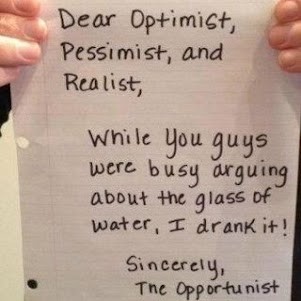 Dear Optimist,
Pessimist, and
Realist,
While You guys
were busy arguing
about the glass of
water, I drank it!
Sincerely,
The Opportunist